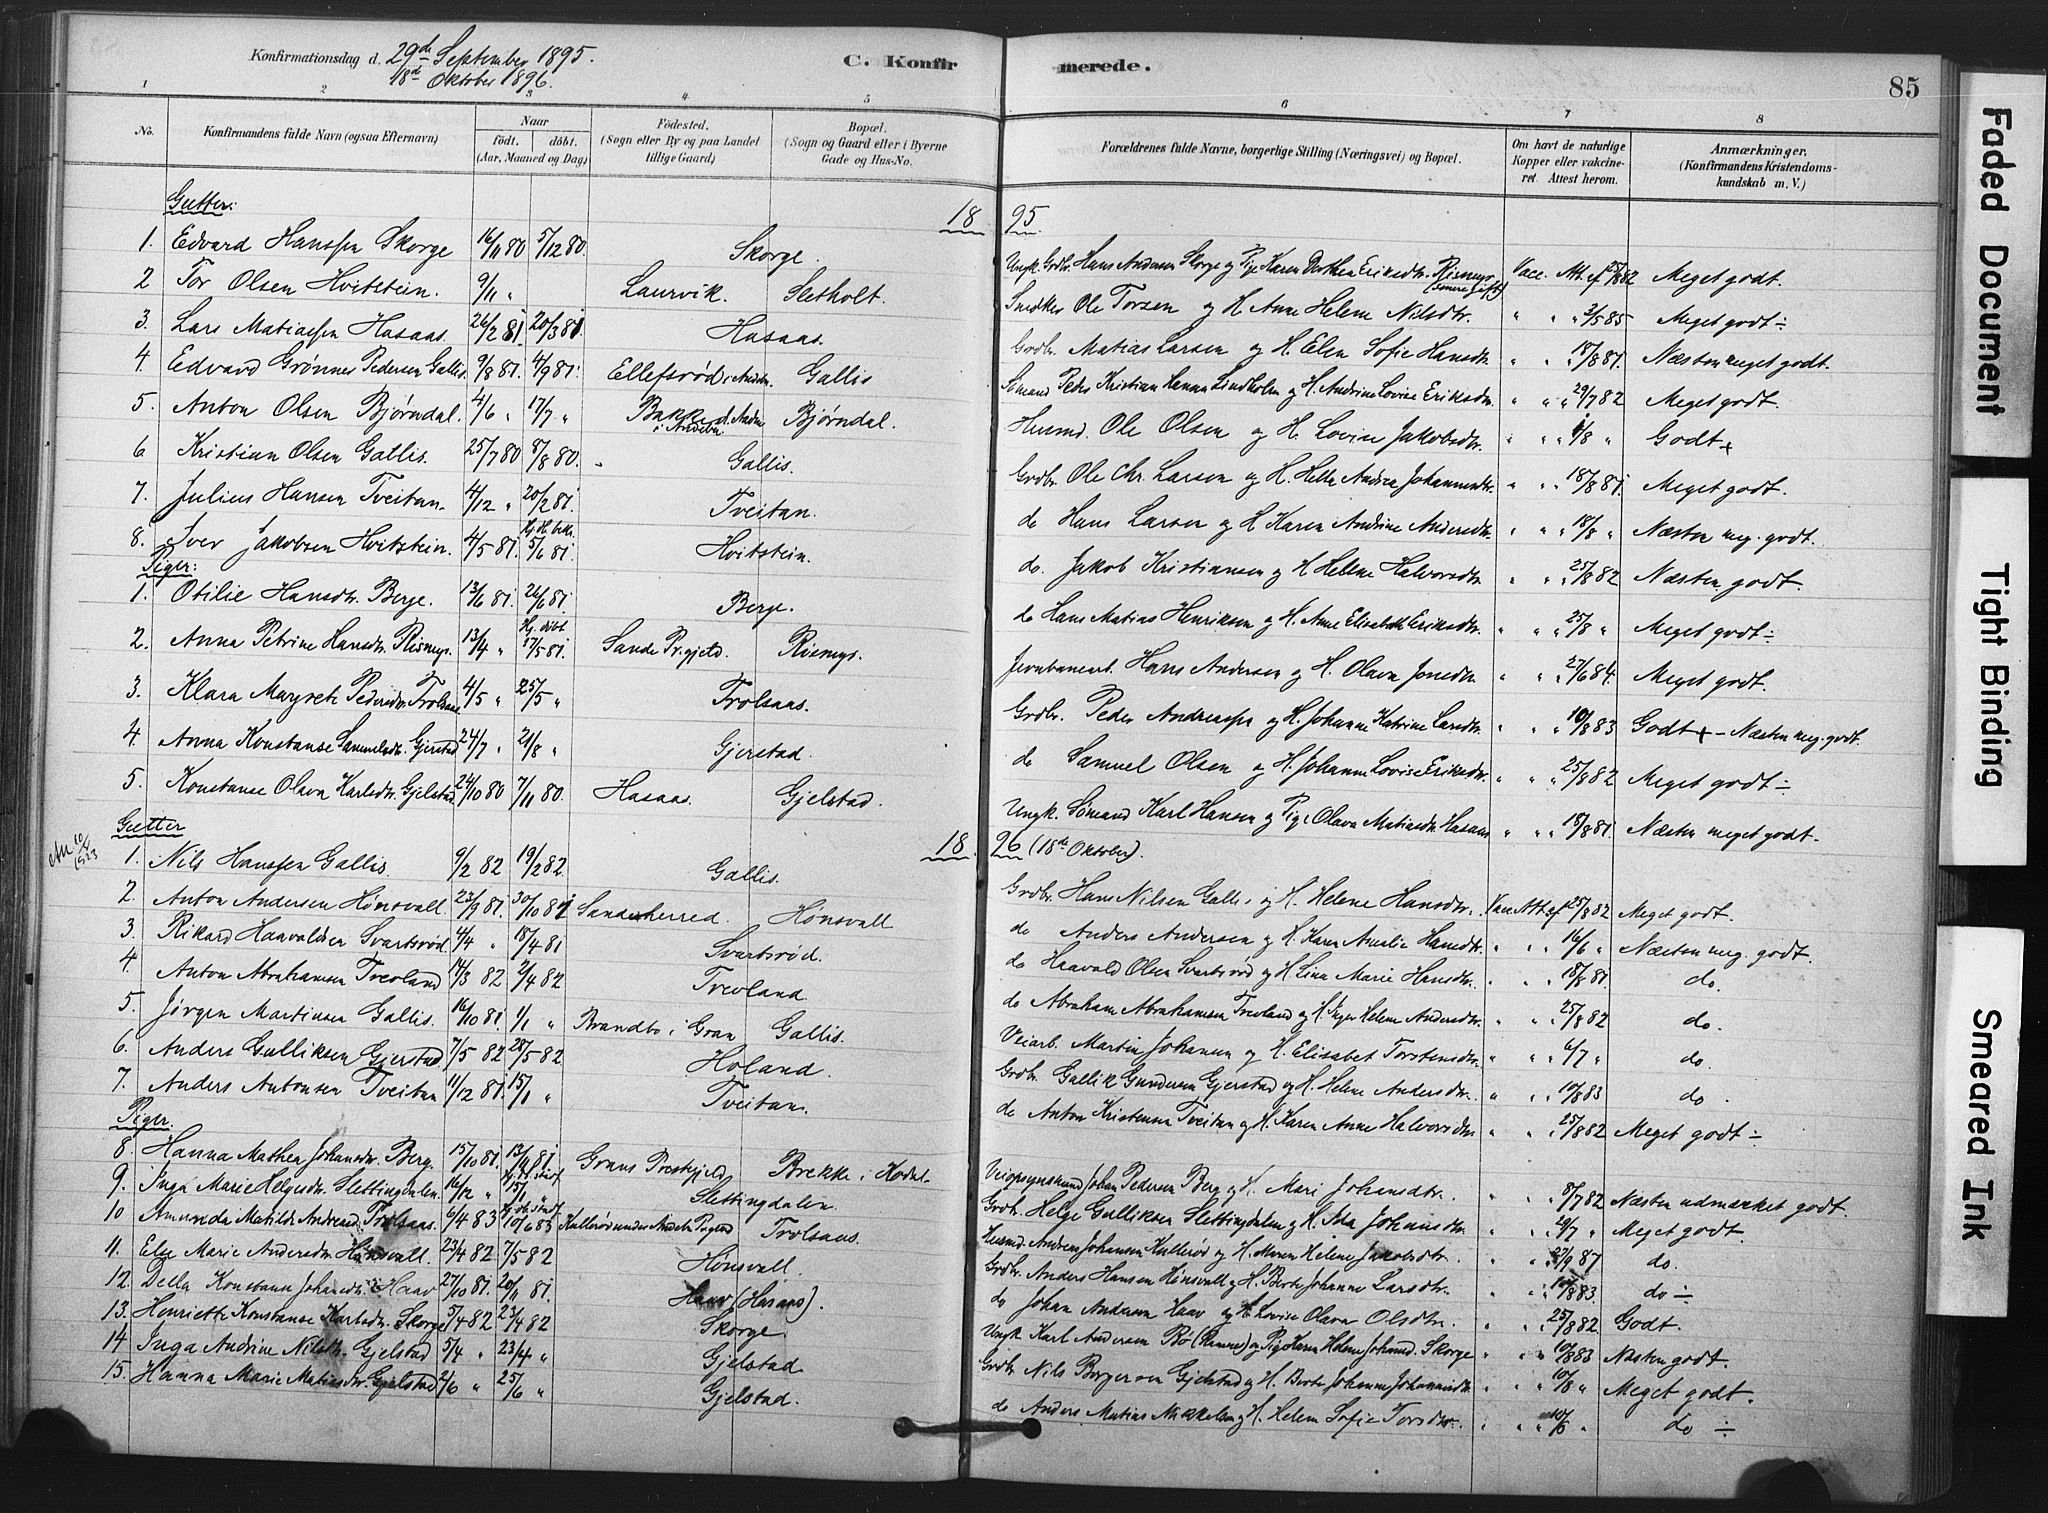 Konfirmationsdag d. 29de September 1895.
18de Oktober 1896.
C. Konfirmerede.
85
1 2 3 4 5 6 7 8
No. Konfirmandens fulde Navn (ogsaa Efternavn) Naar Födt. döbt. (Aar, Maaned og Dag) Födested. (Sogn eller By og paa Landet tillige Gaard) Bopæl. (Sogn og Gaard eller i Byerne Gade og Hus-No. Forældrenes fulde Navne, borgerlige Stilling (Næringsvei) og Bopæl. Om havt de naturlige Kopper eller vakcineret. Attest herom. Anmærkninger. (Konfirmandens Kristendomskundskab m. V.)
Gutter:
18 95
1. Edvard Hanssen Skorge 16/11 80 5/12 80. Skorge. Ungk. Grdbr. Hans Andersen Skorge og Pige Karen Dorthea Eriksdtr. Rismyr (senere gift) Vacc. Att. af 25/8 82 Meget godt.
2 Tor Olsen Hvitstein. 9/11 " Laurvik. Sletholt. Snedker Ole Torsen og H. Anne Helene Nilsdtr. " " " 3/5 85 Meget godt ÷
3. Lars Matiassen Hasaas. 26/2 81. 20/3 81. Hasaas. Grdbr. Matias Larsen og H. Elen Sofie Hansdtr. " " " 18/8 81. Næsten meget godt.
4. Edvard Grønnes Pedersen Gallis. 9/8 81. 4/9 81. Ellefsrød i Andebu. Gallis Sømand Peder Kristian Hanna Lindholm og H. Andrine Lovise Eriksdtr. " " " 29/7 82 Meget godt.
5. Anton Olsen Bjørndal. 4/6 " 17/7 " Bakke i Andebu Bjørndal. Husmd. Ole Olsen og H. Lovise Jakobsdtr. " " " 1/8 " Godt
6 Kristian Olsen Gallis. 25/7 80 8/8 80. Gallis. Grdbr. Ole Chr. Larsen og H. Helene Andrea Johannesdtr. " " " 18/8 81. Meget godt.
7. Julius Hansen Tveitan. 4/12 " 20/2 81. Tveitan. do Hans Larsen og H. Karen Andrine Andersdtr. " " " 18/8 " Næsten meg. godt.
8. Iver Jakobsen Hvitstein. 4/5 81. 5/6 81. Hvitstein. do. Jakob Kristiansen og H. Helene Halvorsdtr. " " " 25/8 82 Næsten godt.
Piger:
1. Otilie Hansdtr. Berge. 13/6 81. 26/6 81. Berge. do Hans Matias Henriksen og H. Anne Elisabeth Eriksdtr. " " " 25/8 " Meget godt ÷
2. Anna Petrine Hansdtr. Rismyr. 13/4 " Hj. døbt 17/5 81. Sande Pr.gjeld. Rismyr. Jernbanearb. Hans Andersen og H. Olava Jonsdtr. " " " 27/6 84. Meget godt.
3. Klara Margrete Pedersdtr. Trolsaas 4/5 " 25/5 " Trolsaas. Grdbr. Peder Andreassen og H. Johanne Katrine Larsdtr. " " " 10/8 83 Godt - Næsten meg. godt.
4. Anna Konstanse Samuelsdtr. Gjerstad 24/7 " 21/8 " Gjerstad. do Samuel Olsen og H. Johanne Lovise Eriksdtr. " " " 25/8 82 Meget godt ÷
5. Konstanse Olava Karlsdtr. Gjelstad 24/10 80 7/11 80. Hasaas. Gjelstad. Ungk. Sømand Karl Hansen og Pige Olava Matiasdtr. Hasaas " " " 18/8 81. Næsten meget godt.
Gutter
18 96 (18de Oktober).
1. Nils Hanssen Gallis 9/2 82 19/2 82. Gallis. Grdbr. Hans Nilsen Gallis og H. Helene Hansdtr. Vacc. Att. af 25/8 82 Meget godt.
2. Anton Andersen Hønsvall. 23/9 81. 30/10 81 Sandeherred. Hønsvall do Anders Andersen og H. Karen Amalie Hansdtr. " " " 16/6 " Næsten meg. godt.
3. Rikard Haavaldsen Svartsrød. 4/4 " 18/4 81 Svartsrød. do Haavald Olsen Svartsrød og H. Lina Marie Hansdtr. " " " 18/8 81. do.
4. Anton Abrahamsen Trevland 14/3 82 2/4 82 Trevland do Abraham Abrahamsen Trevland og H. Inger Helene Andersdtr. " " " 25/8 82 do.
5. Jørgen Martinsen Gallis. 16/10 81. 1/1 " Brandbo i Gran Gallis. Veiarb. Martin Johansen og H. Elisabet Torstensdtr. " " " 6/7 " do.
6. Anders Gulliksen Gjerstad 7/5 82 28/5 82. Holand. Grdbr. Gullik Gundersen Gjerstad og H. Helene Andersdtr. " " " 10/8 83 do.
7. Anders Antonsen Tveitan 11/12 81. 15/1 " Tveitan. do Anton Kristensen Tveitan og H. Karen Anne Halvorsdtr. " " " 25/8 82 Meget godt ÷
Piger.
8. Hanna Mathea Johansdtr. Berg. 15/10 81. 13/11 81. Grans Prestegjeld Brekke i Kodal. Veiopsynsmand Johan Pedersen Berg og H. Mari Johansdtr. " " " 8/7 82 Næsten udmærket godt.
9. Inga Marie Helgesdtr. Slettingdalen. 16/12 " 15/1 Slettingdalen. Grdbr. Helge Gulliksen Slettingdalen og H. Ida Johansdtr. " " " 29/7 " Meget godt
10 Amunda Matilde Andreasd. Trolsaas. 6/4 83 10/6 83 Kullerød under Andebu Pr.gjeld Trolsaas. Husmd. Andreas Johansen Kullerød og H. Maren Helene Jakobsdtr. " " " 27/9 87 do.
11. Else Marie Andersdtr. Hønsvall. 23/4 82 7/5 82 Hønsvall. Grdbr. Anders Hansen Hønsvall og H. Berte Johanne Larsdtr. " " " 10/8 83. do ÷
12. Della Konstanse Johansdtr. Haav 27/10 81. 20/11 81. Haav (Hasaas). do Johan Andersen Haav og H. Lovise Olava Olsdtr. " " " 25/8 82 Godt.
13. Henriette Konstanse Karlsdtr. Skorge 5/4 82 23/4 82 Skorge. Ungk. Karl Andersen Bø (Ramnes) og Pige Karen Helene Johansd. Skorge " " " 10/8 83 Næsten godt.
14 Inga Andrine Nilsdtr. Gjelstad 5/4 " 23/4 " Gjelstad Grdbr. Nils Borgersen Gjelstad og H. Berte Johanne Johannesdtr. " " " 10/8 " Meget godt.
15. Hanna Marie Matiasdtr. Gjelstad 2/6 " 25/6 " Gjelstad. do Anders Matias Mikkelsen og H. Helene Sofie Torsdtr. " " " do ÷
Faded Document
Tight Binding
Smeared Ink